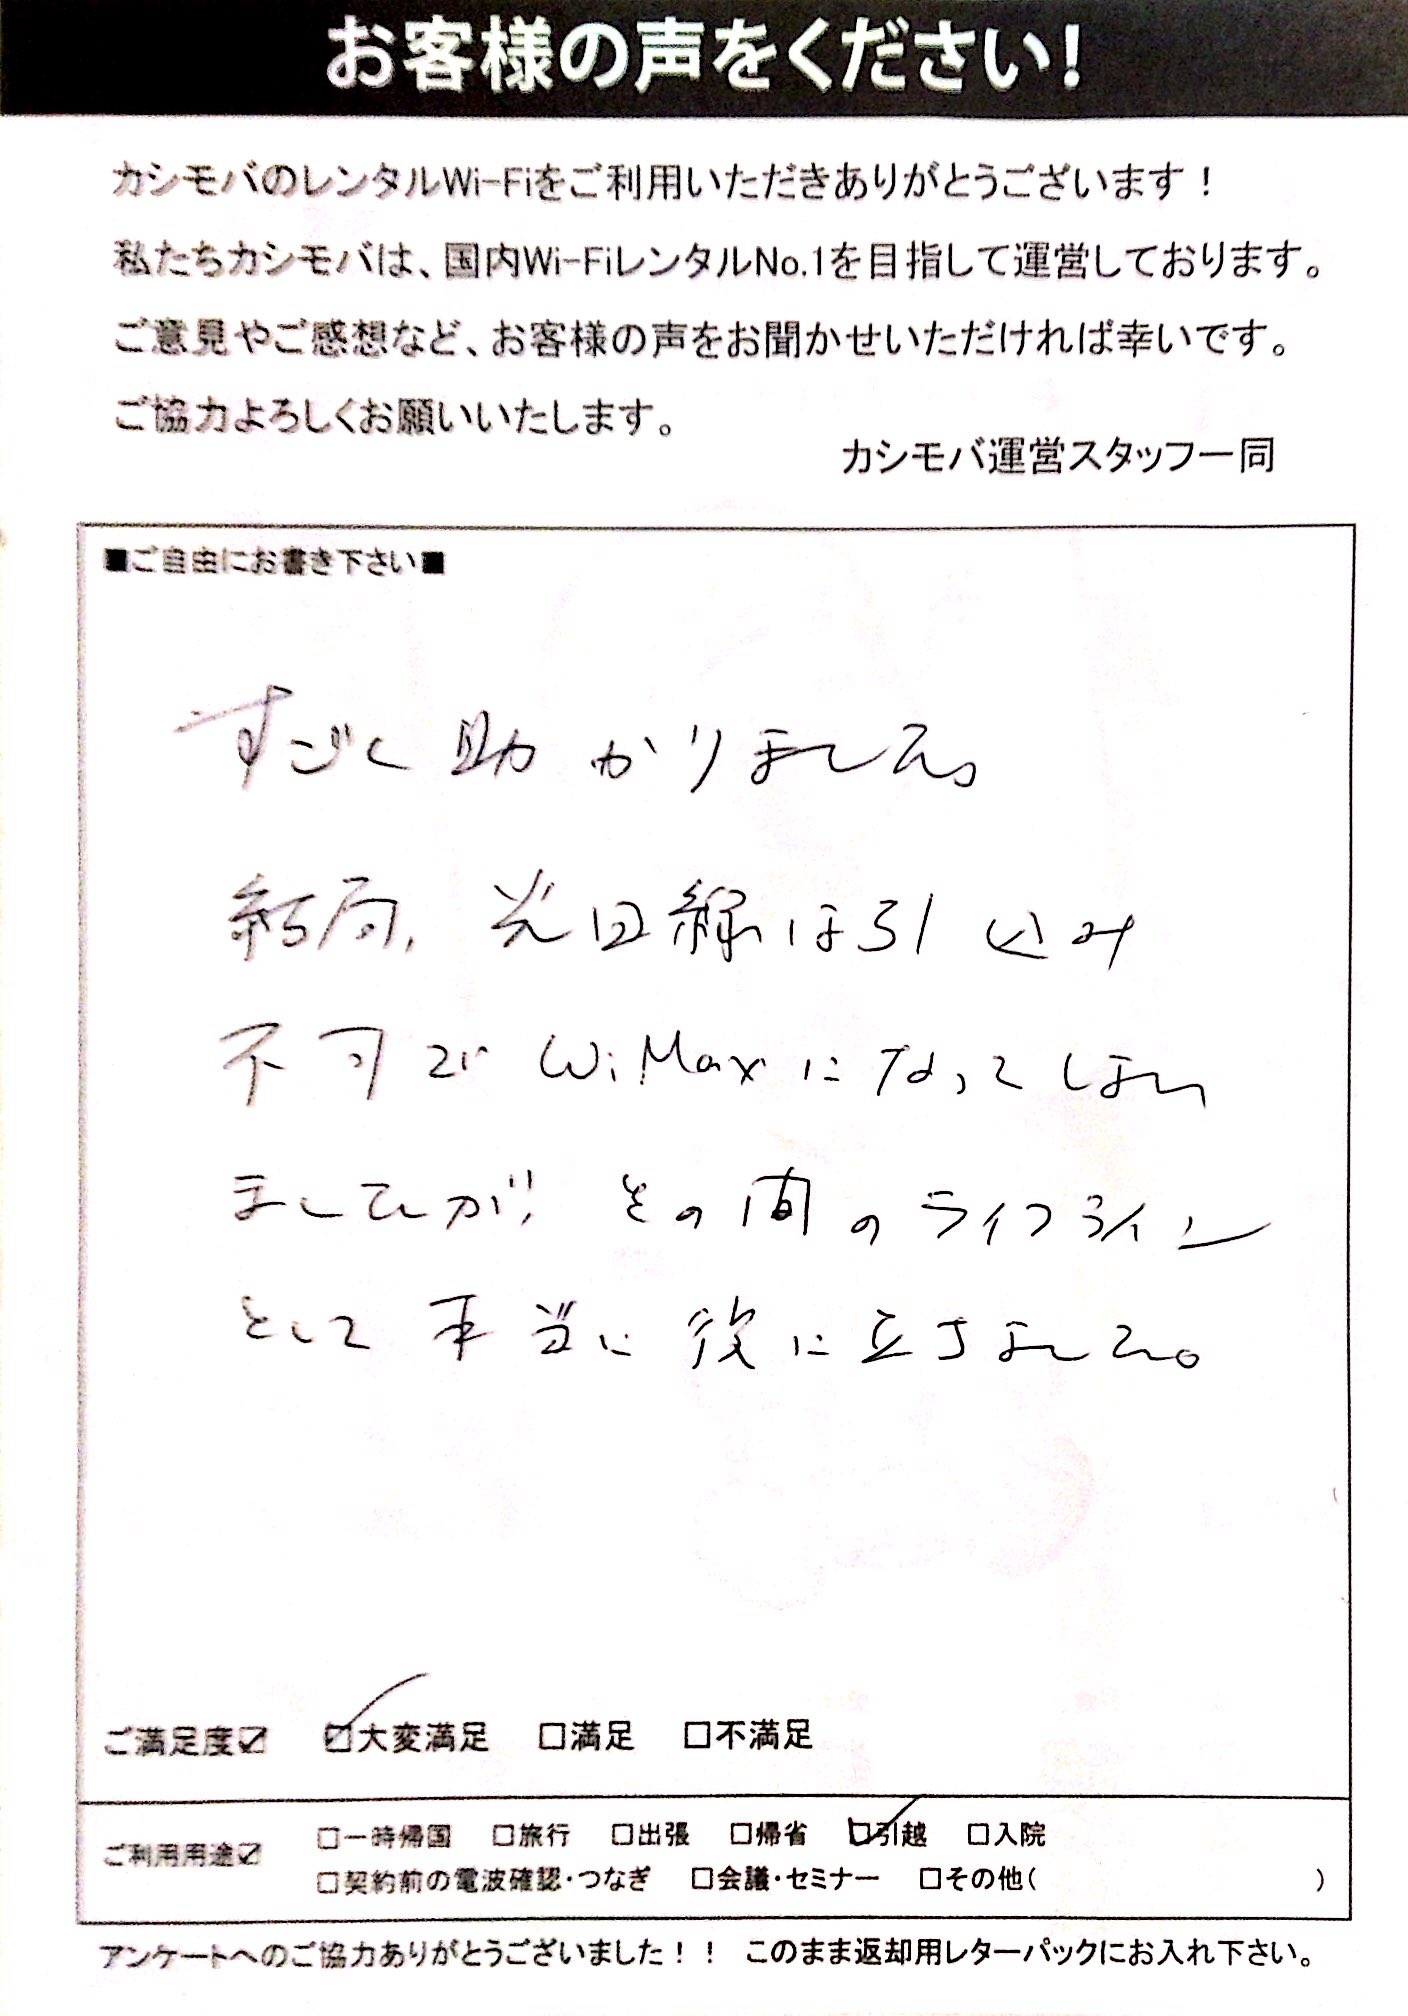 お客様の声をください!
カシモバのレンタルWi-Fiをご利用いただきありがとうございます！
私たちカシモバは、国内Wi-FiレンタルNo.1を目指して運営しております。
ご意見やご感想など、お客様の声をお聞かせいただければ幸いです。
ご協力よろしくお願いいたします。
カシモバ運営スタッフ一同
■ご自由にお書き下さい■
すごく助かりました。
結局、光回線は引込み
不可で WiMaxになってしまい
ましたが、その間のライフライン
として本当に役に立ちました。
ご満足度☑ ☑大変満足 □満足 □不満足
ご利用用途☑ □一時帰国 □旅行 □出張 □帰省 ☑引越 □入院
□契約前の電波確認・つなぎ □会議・セミナー □その他( )
アンケートへのご協力ありがとうございました！！ このまま返却用レターパックにお入れ下さい。